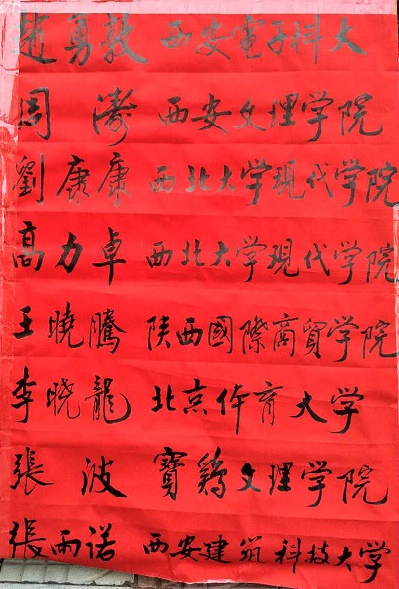 趙勇敦 西安電子科大
周濤 西安文理学院
劉康康 西北大学現代学院
高力卓 西北大学現代学院
王曉騰 陕西國際商貿学院
李曉龍 北京体育大学
張波 寶鷄文理学院
張雨诺 西安建筑科技大学